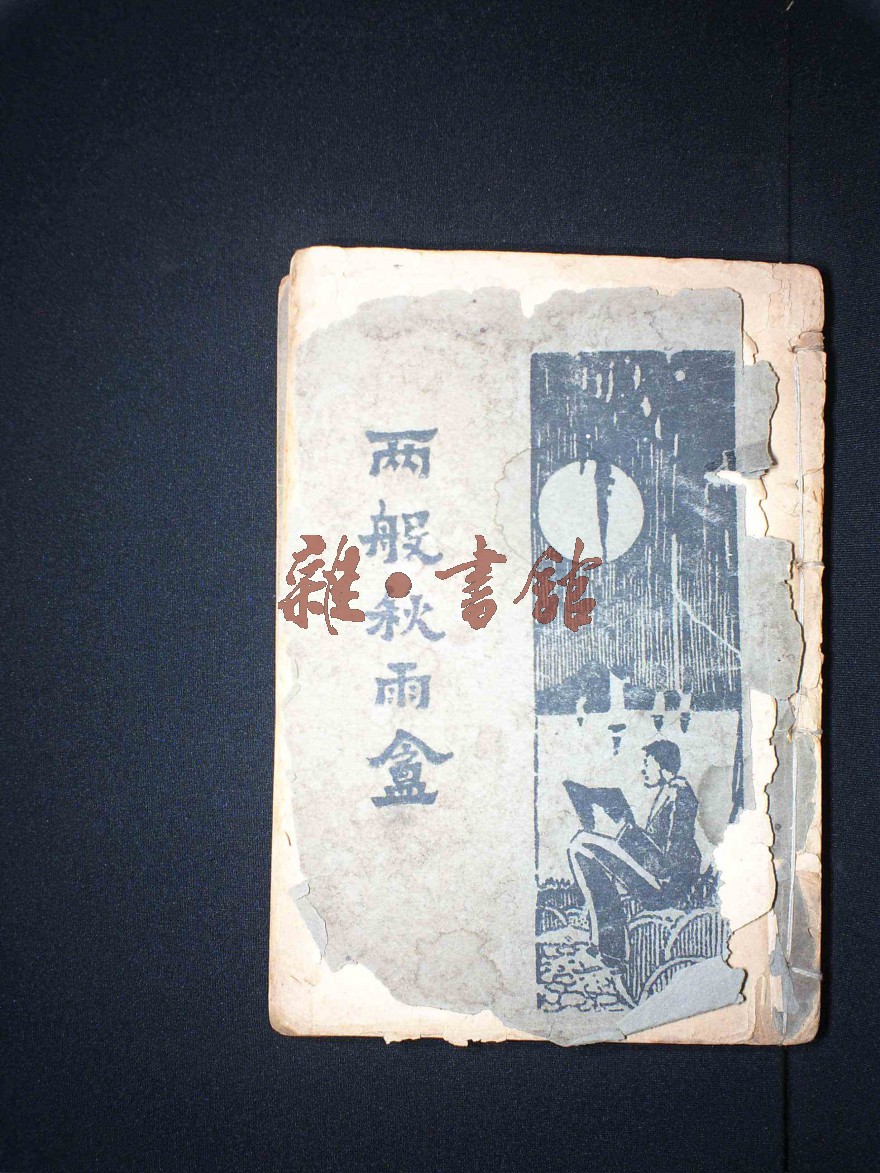 两般秋雨盦
雜·書館